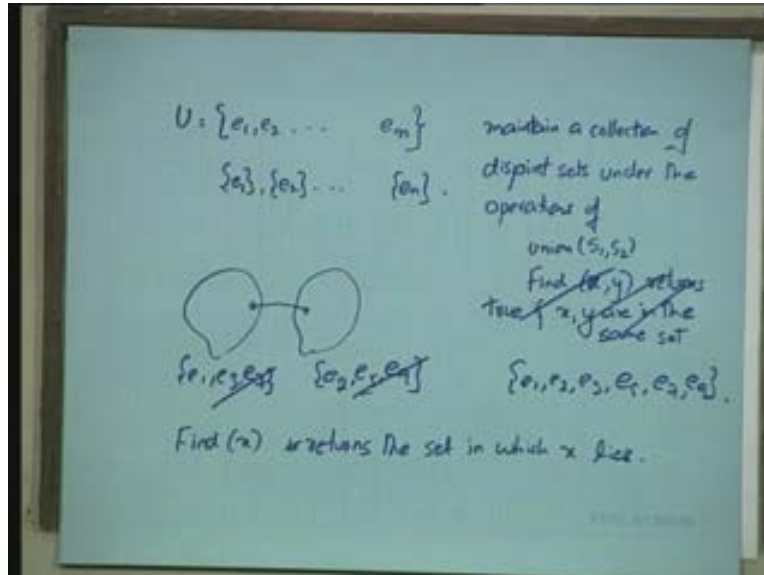 U = {e₁, e₂ ... eₙ}
{e₁}, {e₂} ... {eₙ}.
maintain a collection of
disjoint sets under the
operations of
union (S₁, S₂)
Find (x, y) returns
true if x, y are in the
same set
{e₁, e₃ e₇} {e₂, e₅ e₉} {e₁, e₂, e₃, e₅, e₇, e₉}.
Find (x) returns the set in which x lies.